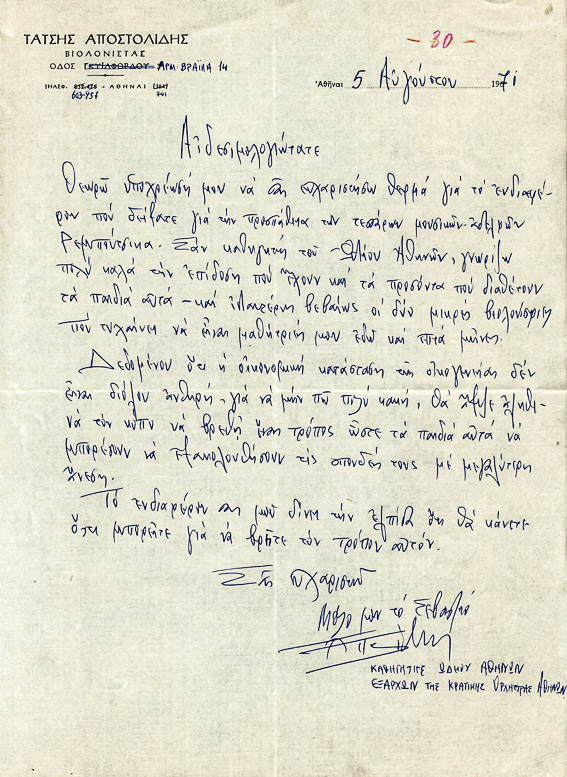 - 30 -
ΤΑΤΣΗΣ ΑΠΟΣΤΟΛΙΔΗΣ
ΒΙΟΛΟΝΙΣΤΑΣ
ΟΔΟΣ ΓΚΥΙΛΦΟΡΔΟΥ ΑΡΜ. ΒΡΑΪΛΑ 14
ΤΗΛΕΦ. - ΑΘΗΝΑΙ
603-451 741
Ἀθῆναι 5 Αὐγούστου 1971
Αἰδεσιμολογιώτατε
Θεωρῶ ὑποχρέωσή μου νὰ σᾶς εὐχαριστήσω θερμὰ γιὰ τὸ ἐνδιαφέ-
ρον ποὺ δείξατε γιὰ τὴν προσπάθεια τῶν τεσσάρων μουσικῶν-ἀδελφῶν
Ρεμπούτσικα. Σὰν καθηγητὴς τοῦ Ὠδείου Ἀθηνῶν, γνωρίζω
πολὺ καλὰ τὴν ἐπίδοση ποὺ ἔχουν καὶ τὰ προσόντα ποὺ διαθέτουν
τὰ παιδιὰ αὐτὰ - καὶ βεβαίως οἱ δύο μικρὲς βιολονίστριες
ποὺ τυχαίνει νὰ εἶναι μαθήτριές μου ἐδῶ καὶ μῆνες.
Δεδομένου ὅτι ἡ οἰκονομικὴ κατάσταση τῆς οἰκογενείας δὲν
εἶναι διόλου ἀνθηρή, γιὰ νὰ μὴν πῶ πολὺ κακή, θὰ ἄξιζε
νὰ τὸν κόπο νὰ βρεθῆ ἕνας τρόπος ὥστε τὰ παιδιὰ αὐτὰ νὰ
μπορέσουν νὰ ἐξακολουθήσουν τὶς σπουδές τους μὲ μεγαλύτερη
ἄνεση.
Τὸ ἐνδιαφέρον σας μοῦ δίνει τὴν ἐλπίδα ὅτι θὰ κάνετε
ὅτι μπορεῖτε γιὰ νὰ βρεῖτε τὸν τρόπον αὐτόν.
Σᾶς εὐχαριστῶ
Μὲ ὅλο μου τὸ σεβασμό
ΚΑΘΗΓΗΤΗΣ ΩΔΕΙΟΥ ΑΘΗΝΩΝ
ΕΞΑΡΧΩΝ ΤΗΣ ΚΡΑΤΙΚΗΣ ΟΡΧΗΣΤΡΑΣ ΑΘΗΝΩΝ